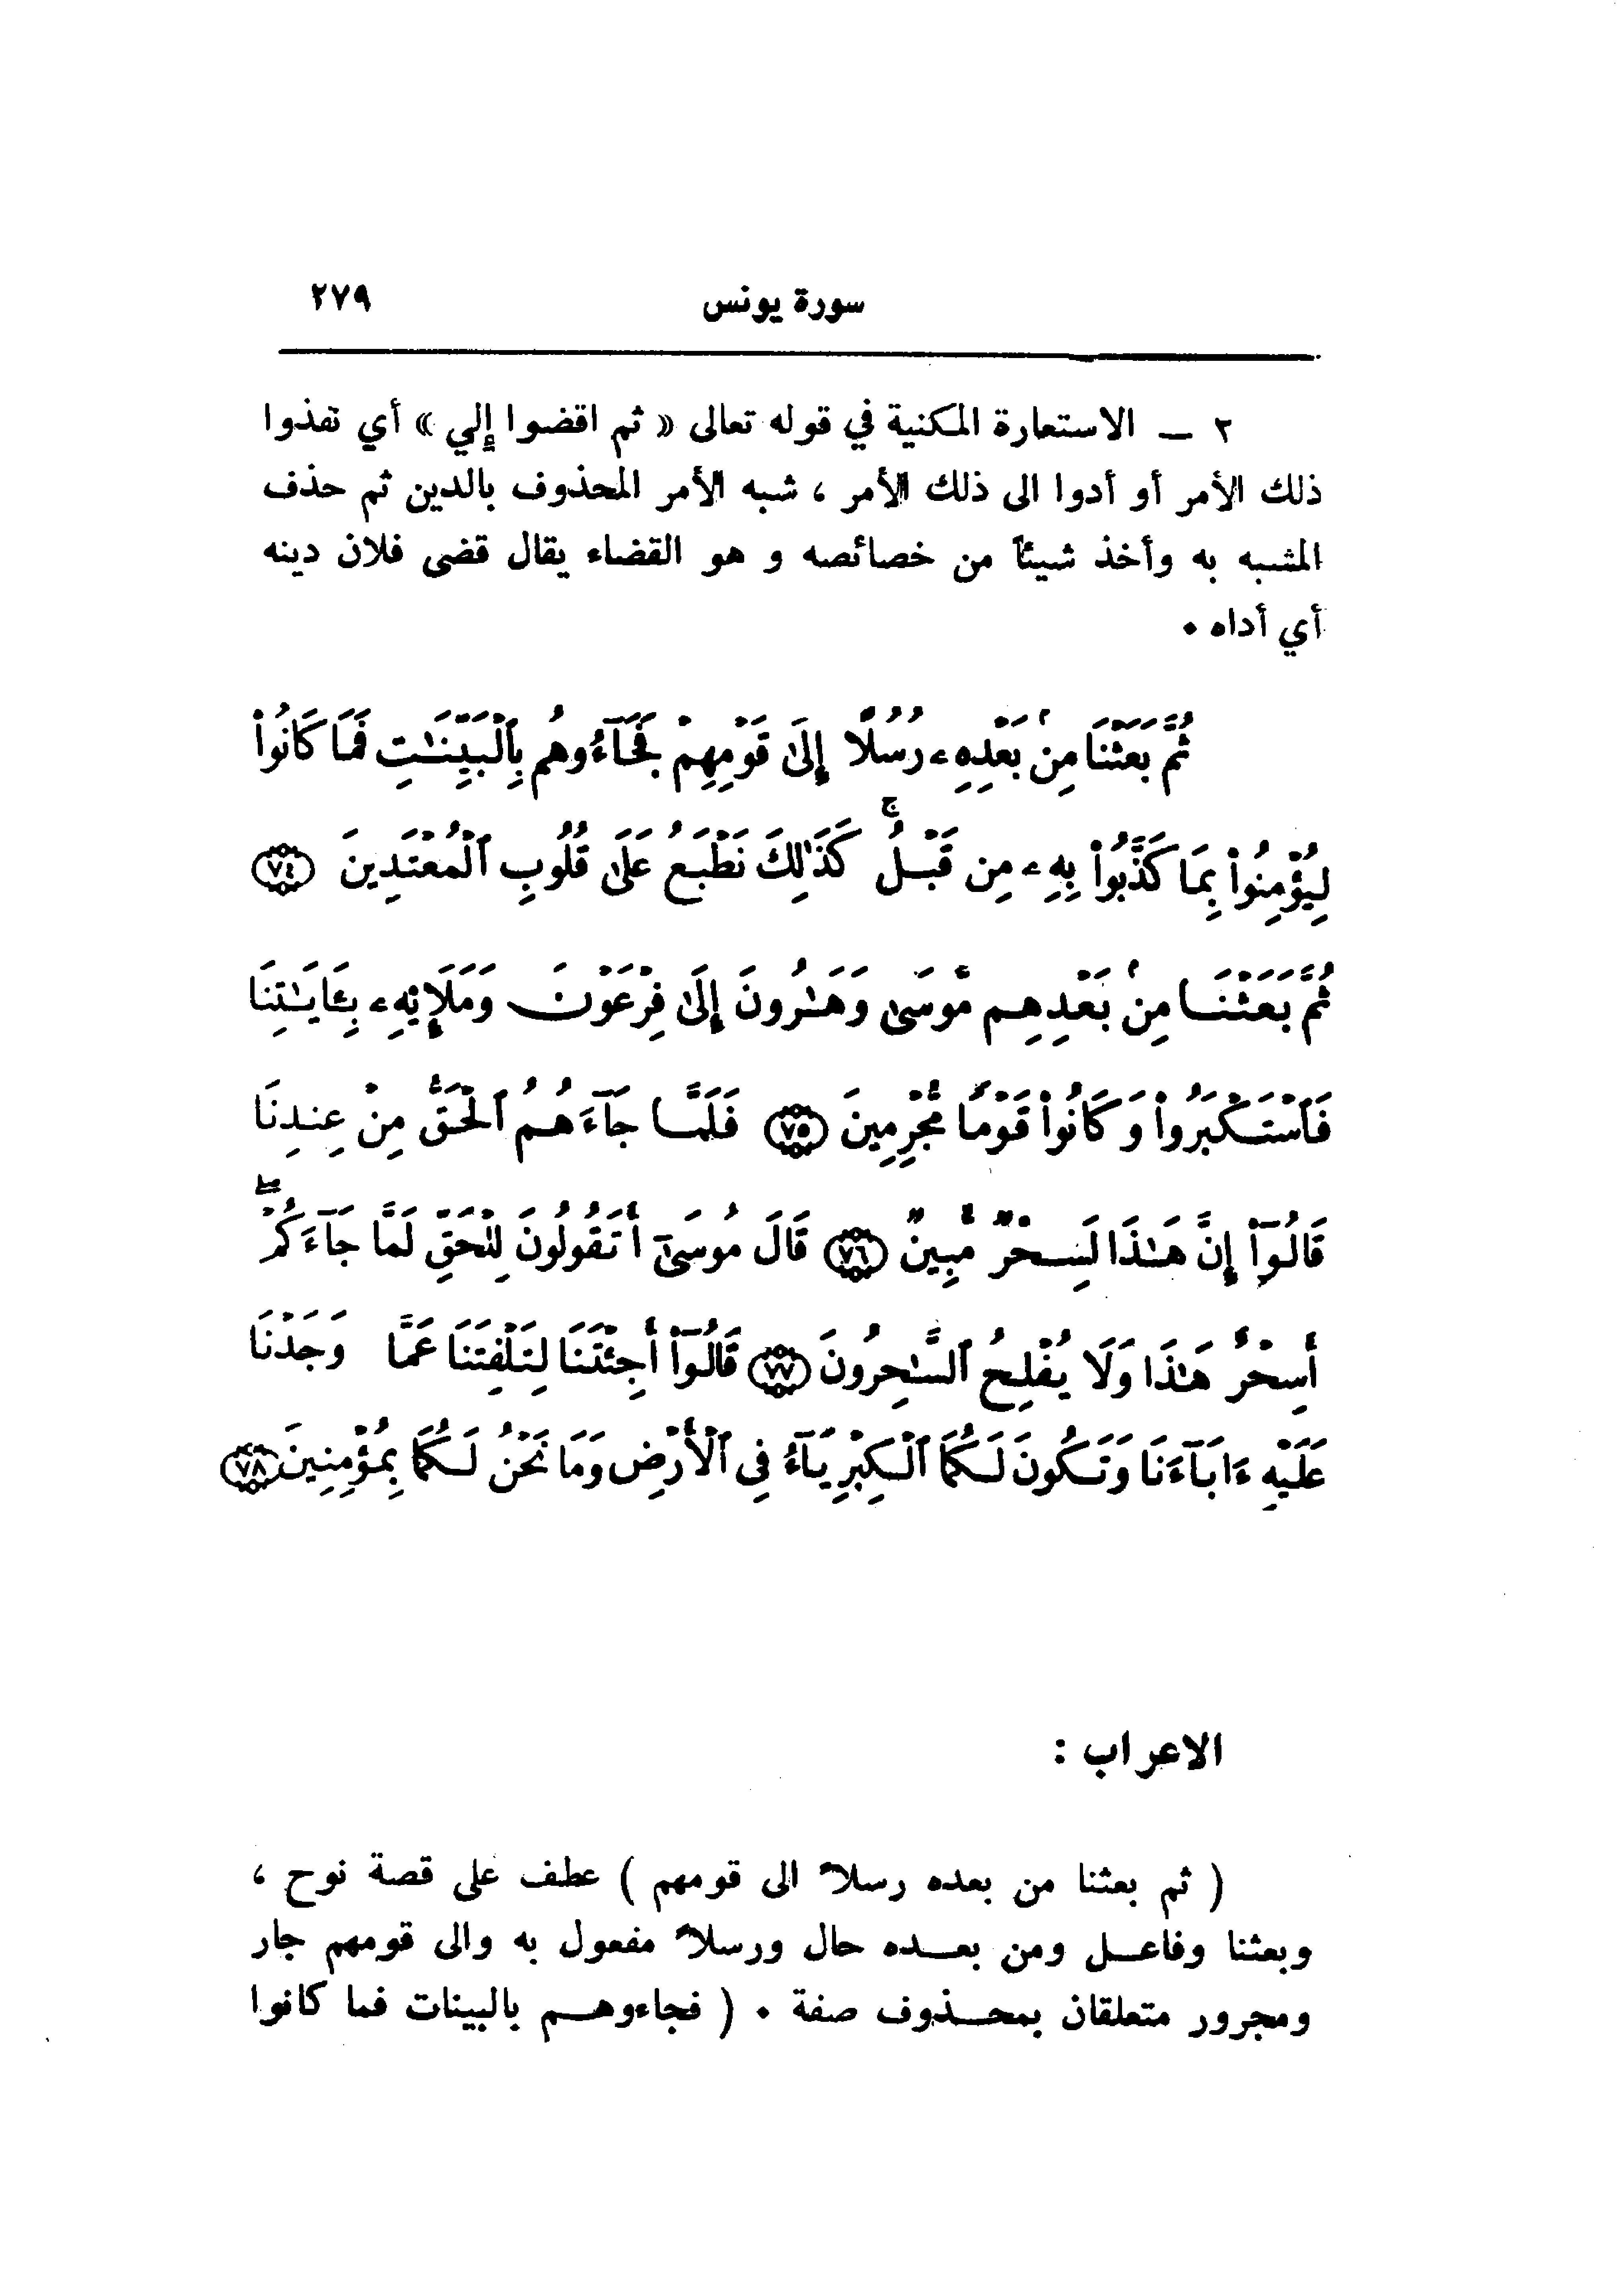 سورة يونس ٢٧٩
٢ – الاستعارة المكنية في قوله تعالى « ثم اقضوا إلي » أي نفذوا
ذلك الأمر أو أدوا الى ذلك الأمر ، شبه الأمر المحذوف بالدين ثم حذف
المشبه به وأخذ شيئاً من خصائصه و هو القضاء يقال قضى فلان دينه
أي أداه .
ثُمَّ بَعَثْنَا مِنۢ بَعْدِهِۦ رُسُلًا إِلَىٰ قَوْمِهِمْ فَجَآءُوهُم بِٱلْبَيِّنَـٰتِ فَمَا كَانُوا۟
لِيُؤْمِنُوا۟ بِمَا كَذَّبُوا۟ بِهِۦ مِن قَبْلُ ۚ كَذَٰلِكَ نَطْبَعُ عَلَىٰ قُلُوبِ ٱلْمُعْتَدِينَ ﴿٧٤﴾
ثُمَّ بَعَثْنَا مِنۢ بَعْدِهِم مُّوسَىٰ وَهَـٰرُونَ إِلَىٰ فِرْعَوْنَ وَمَلَإِي۟هِۦ بِـَٔايَـٰتِنَا
فَٱسْتَكْبَرُوا۟ وَكَانُوا۟ قَوْمًا مُّجْرِمِينَ ﴿٧٥﴾ فَلَمَّا جَآءَهُمُ ٱلْحَقُّ مِنْ عِندِنَا
قَالُوٓا۟ إِنَّ هَـٰذَا لَسِحْرٌ مُّبِينٌ ﴿٧٦﴾ قَالَ مُوسَىٰٓ أَتَقُولُونَ لِلْحَقِّ لَمَّا جَآءَكُمْ ۖ
أَسِحْرٌ هَـٰذَا وَلَا يُفْلِحُ ٱلسَّـٰحِرُونَ ﴿٧٧﴾ قَالُوٓا۟ أَجِئْتَنَا لِتَلْفِتَنَا عَمَّا وَجَدْنَا
عَلَيْهِ ءَابَآءَنَا وَتَكُونَ لَكُمَا ٱلْكِبْرِيَآءُ فِى ٱلْأَرْضِ وَمَا نَحْنُ لَكُمَا بِمُؤْمِنِينَ ﴿٧٨﴾
الاعراب :
( ثم بعثنا من بعده رسلاً الى قومهم ) عطف على قصة نوح ،
وبعثنا وفاعل ومن بعده حال ورسلاً مفعول به والى قومهم جار
ومجرور متعلقان بمحذوف صفة . ( فجاءوهم بالبينات فما كانوا